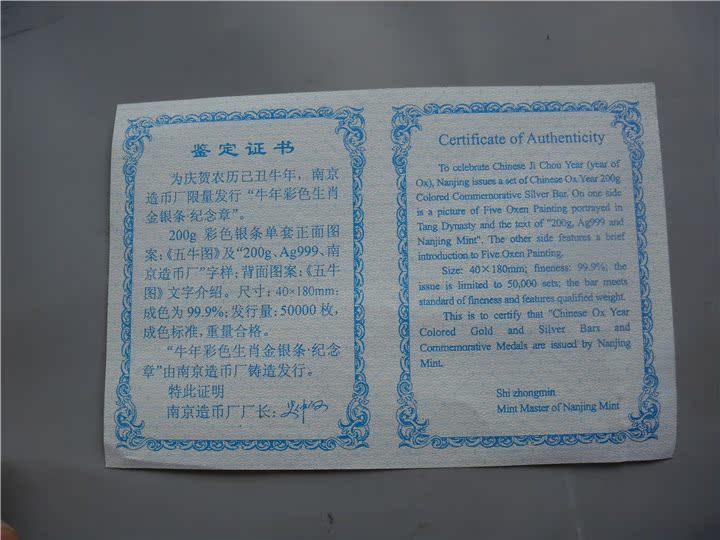 鉴定证书
为庆贺农历己丑牛年，南京
造币厂限量发行“牛年彩色生肖
金银条·纪念章”。
200g 彩色银条单套正面图
案：《五牛图》及“200g、Ag999、南
京造币厂”字样；背面图案：《五牛
图》文字介绍。尺寸：40×180mm；
成色为 99.9%；发行量：50000 枚，
成色标准，重量合格。
“牛年彩色生肖金银条·纪念
章”由南京造币厂铸造发行。
特此证明
南京造币厂厂长：
Certificate of Authenticity
To celebrate Chinese Ji Chou Year (year of
Ox), Nanjing issues a set of Chinese Ox Year 200g
Colored Commemorative Silver Bar. On one side
is a picture of Five Oxen Painting portrayed in
Tang Dynasty and the text of "200g, Ag999 and
Nanjing Mint". The other side features a brief
introduction to Five Oxen Painting.
Size: 40×180mm; fineness: 99.9%; the
issue is limited to 50,000 sets; the bar meets
standard of fineness and features qualified weight.
This is to certify that "Chinese Ox Year
Colored Gold and Silver Bars and
Commemorative Medals are issued by Nanjing
Mint.
Shi zhongmin
Mint Master of Nanjing Mint